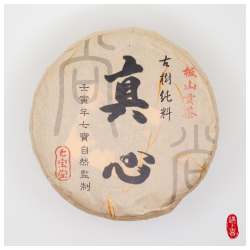 板山贡茶
古树纯料
真心
壬寅年七寶自然监制
七宝堂